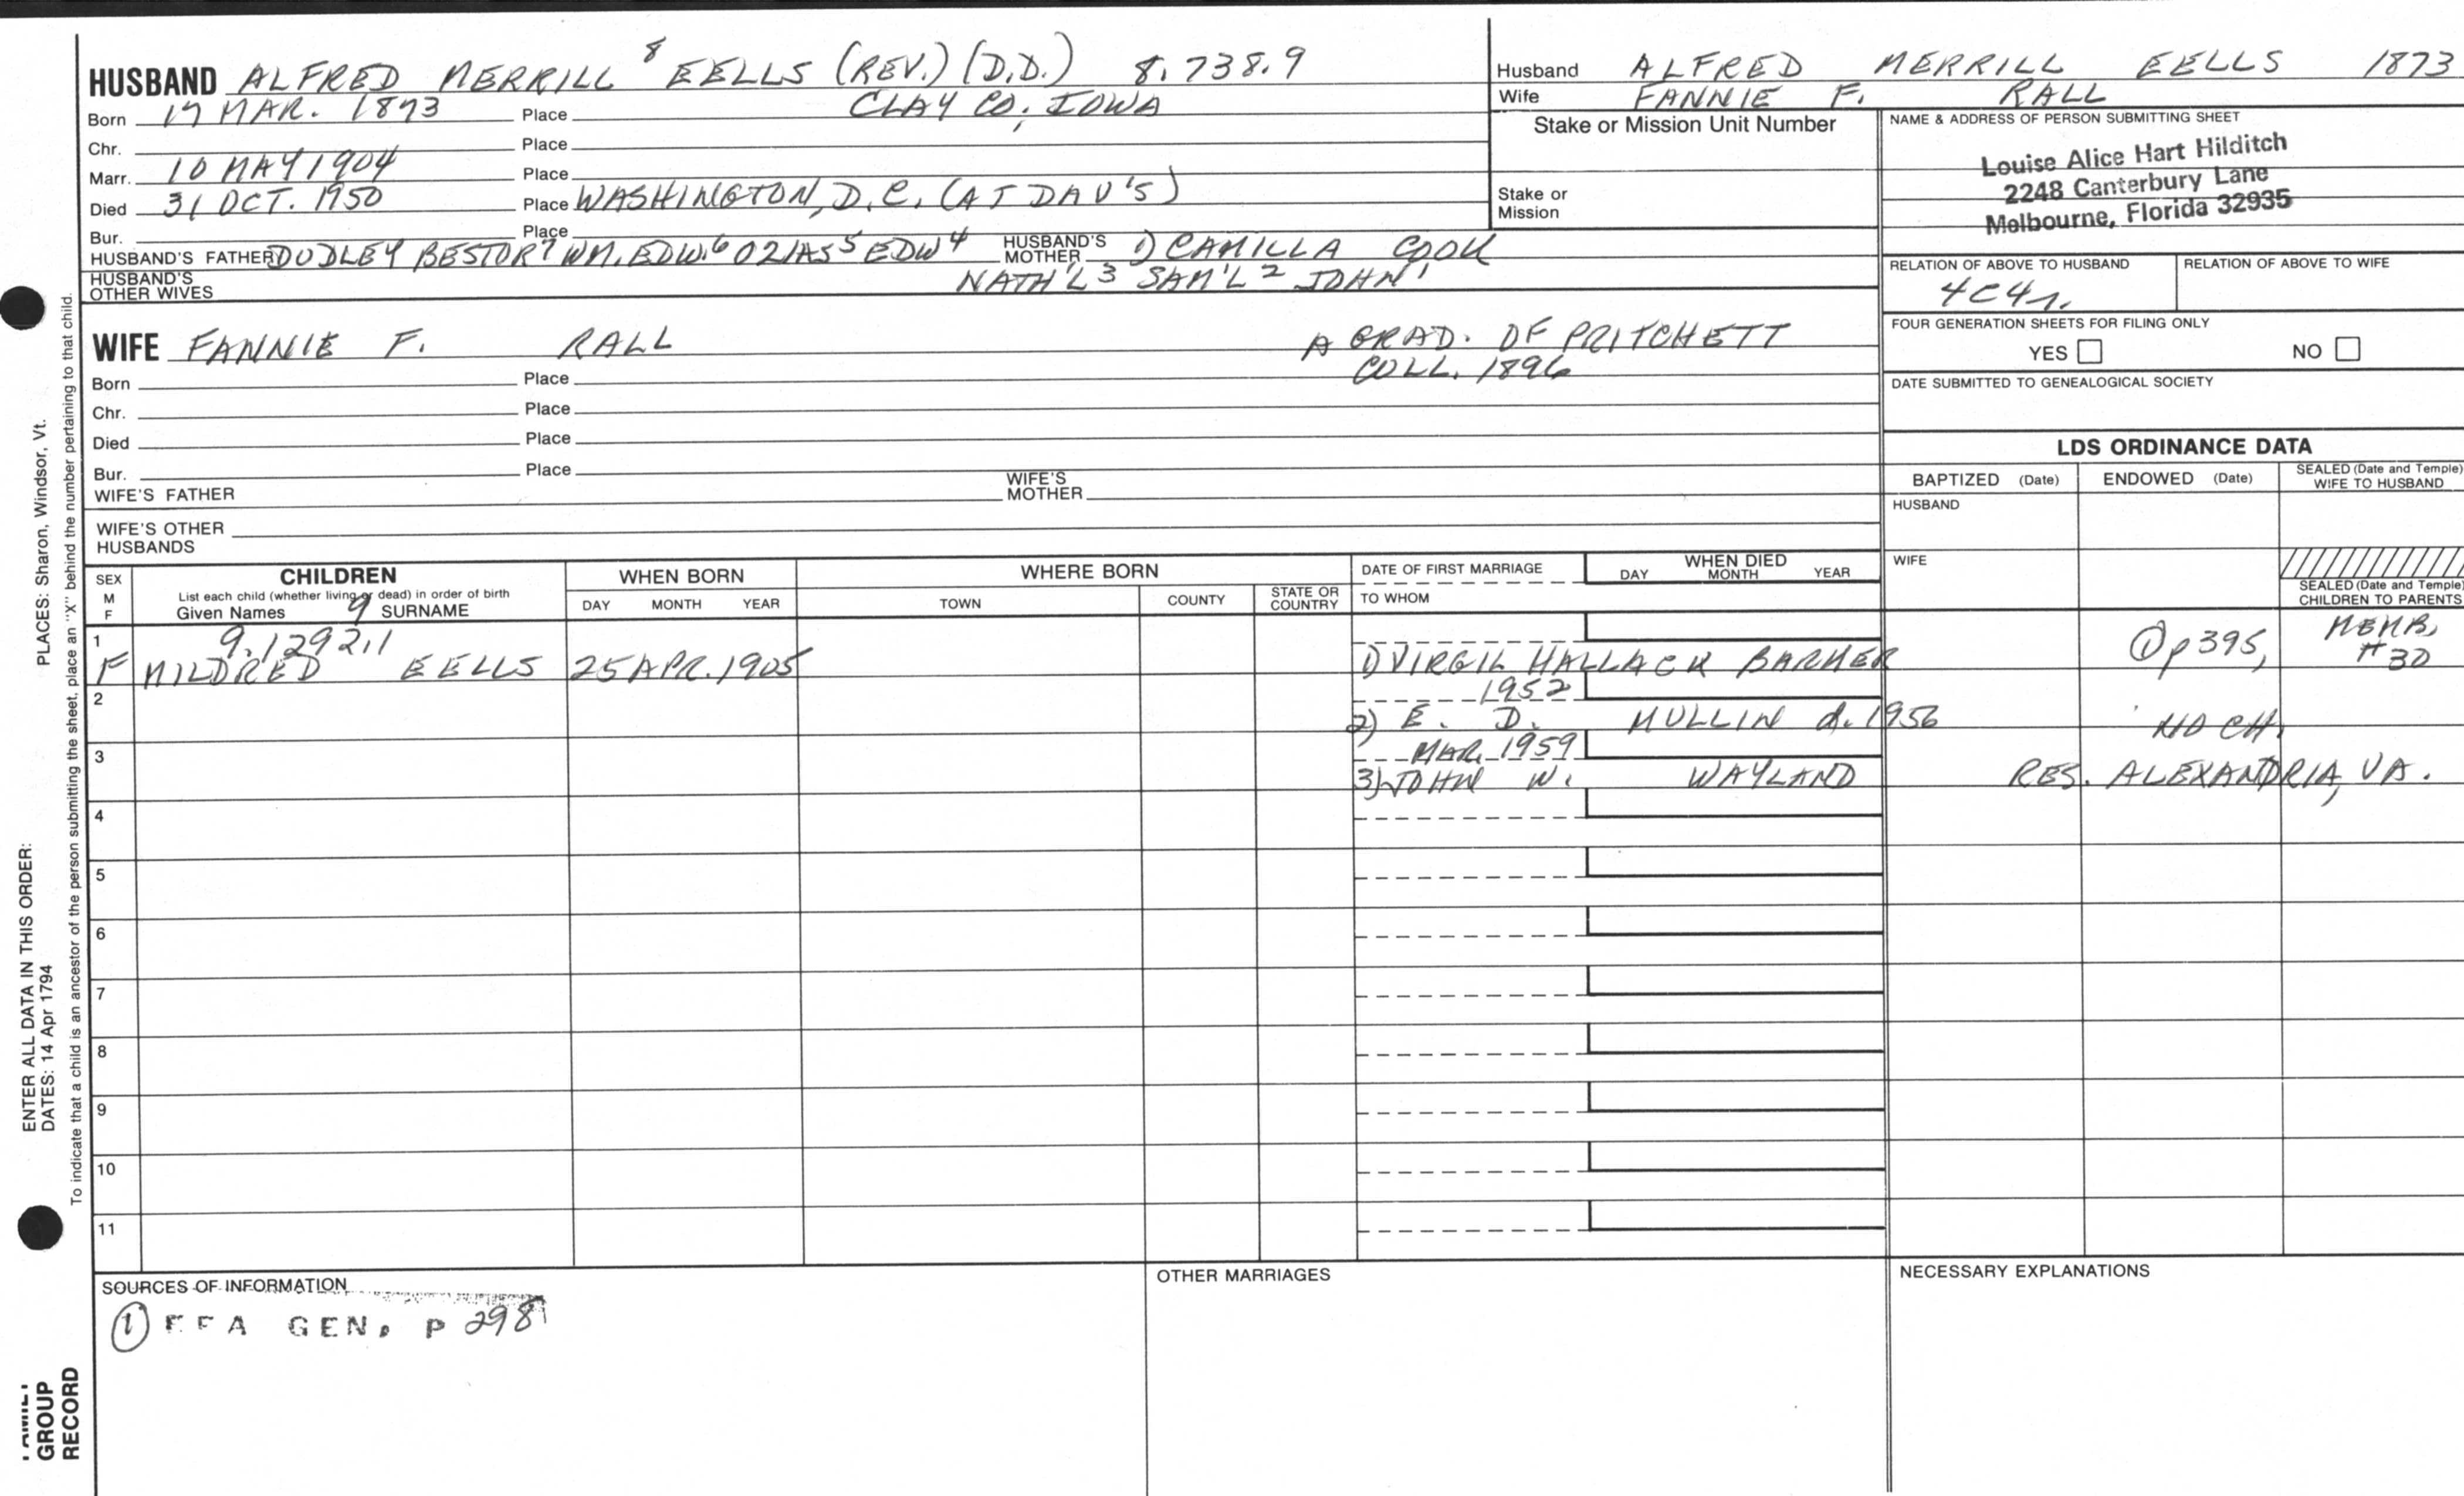 HUSBAND ALFRED MERRILL 8 EELLS (REV.) (D.D.) 8.738.9
Born 17 MAR. 1873 Place CLAY CO., IOWA
Chr. Place
Marr. 10 MAY 1904 Place
Died 31 OCT. 1950 Place WASHINGTON, D.C. (AT DAU'S)
Bur. Place
HUSBAND'S FATHER DUDLEY BESTOR 7 WM. EDW. 6 OZIAS 5 EDW 4 HUSBAND'S MOTHER 1) CAMILLA COOK
HUSBAND'S OTHER WIVES NATH'L 3 SAM'L 2 JOHN 1
Husband ALFRED MERRILL EELLS 1873
Wife FANNIE F. RALL
Stake or Mission Unit Number
Stake or
Mission
NAME & ADDRESS OF PERSON SUBMITTING SHEET
Louise Alice Hart Hilditch
2248 Canterbury Lane
Melbourne, Florida 32935
RELATION OF ABOVE TO HUSBAND RELATION OF ABOVE TO WIFE
4C4r.
FOUR GENERATION SHEETS FOR FILING ONLY
YES NO
DATE SUBMITTED TO GENEALOGICAL SOCIETY
WIFE FANNIE F. RALL A GRAD. OF PRITCHETT
COLL. 1896
Born Place
Chr. Place
Died Place
Bur. Place
WIFE'S FATHER WIFE'S MOTHER
WIFE'S OTHER
HUSBANDS
LDS ORDINANCE DATA
BAPTIZED (Date) ENDOWED (Date) SEALED (Date and Temple) WIFE TO HUSBAND
HUSBAND
WIFE
SEALED (Date and Temple)
CHILDREN TO PARENTS
SEX M F CHILDREN WHEN BORN WHERE BORN DATE OF FIRST MARRIAGE WHEN DIED
List each child (whether living or dead) in order of birth
Given Names 9 SURNAME DAY MONTH YEAR TOWN COUNTY STATE OR COUNTRY TO WHOM DAY MONTH YEAR
1 9.1292.1
F MILDRED EELLS 25 APR. 1905 1) VIRGIL HALLACK BARKER ① p 395, MEMB. #30
2 1952
2) E. D. MULLIN d. 1956 NO CH.
3 MAR. 1959
3) JOHN W. WAYLAND RES. ALEXANDRIA, VA.
4
5
6
7
8
9
10
11
SOURCES OF INFORMATION OTHER MARRIAGES NECESSARY EXPLANATIONS
① EFA GEN. P 298
ENTER ALL DATA IN THIS ORDER:
DATES: 14 Apr 1794
PLACES: Sharon, Windsor, Vt.
To indicate that a child is an ancestor of the person submitting the sheet, place an "X" behind the number pertaining to that child.
FAMILY
GROUP
RECORD